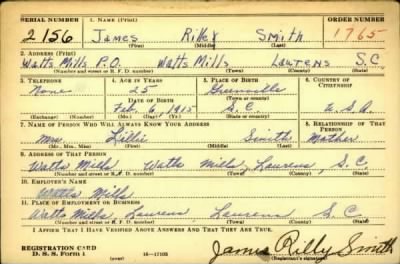 SERIAL NUMBER 1. NAME (Print) ORDER NUMBER
2156 James Riley Smith 1765
(First) (Middle) (Last)
2. ADDRESS (Print)
Watts Mills P.O. Watts Mills Laurens S.C.
(Number and street or R. F. D. number) (Town) (County) (State)
3. TELEPHONE 4. AGE IN YEARS 5. PLACE OF BIRTH 6. COUNTRY OF CITIZENSHIP
None 25 Greenville
DATE OF BIRTH (Town or county)
Feb. 6, 1915 S.C. U.S.A.
(Exchange) (Number) (Mo.) (Day) (Yr.) (State or country)
7. NAME OF PERSON WHO WILL ALWAYS KNOW YOUR ADDRESS 8. RELATIONSHIP OF THAT PERSON
Mrs Lillie Smith Mother
(Mr., Mrs., Miss) (First) (Middle) (Last)
9. ADDRESS OF THAT PERSON
Watts Mills Watts Mills, Laurens, S.C.
(Number and street or R. F. D. number) (Town) (County) (State)
10. EMPLOYER'S NAME
Watts Mills
11. PLACE OF EMPLOYMENT OR BUSINESS
Watts Mills Laurens Laurens S.C.
(Number and street or R. F. D. number) (Town) (County) (State)
I AFFIRM THAT I HAVE VERIFIED ABOVE ANSWERS AND THAT THEY ARE TRUE.
REGISTRATION CARD
D. S. S. Form 1 (over) 16—17105 James Rilly Smith
(Registrant's signature)